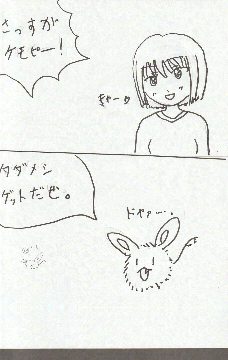 さっすが
ケモピー！
きゃーっ
タダメシ
ゲットだぜ。
ドヤァー。